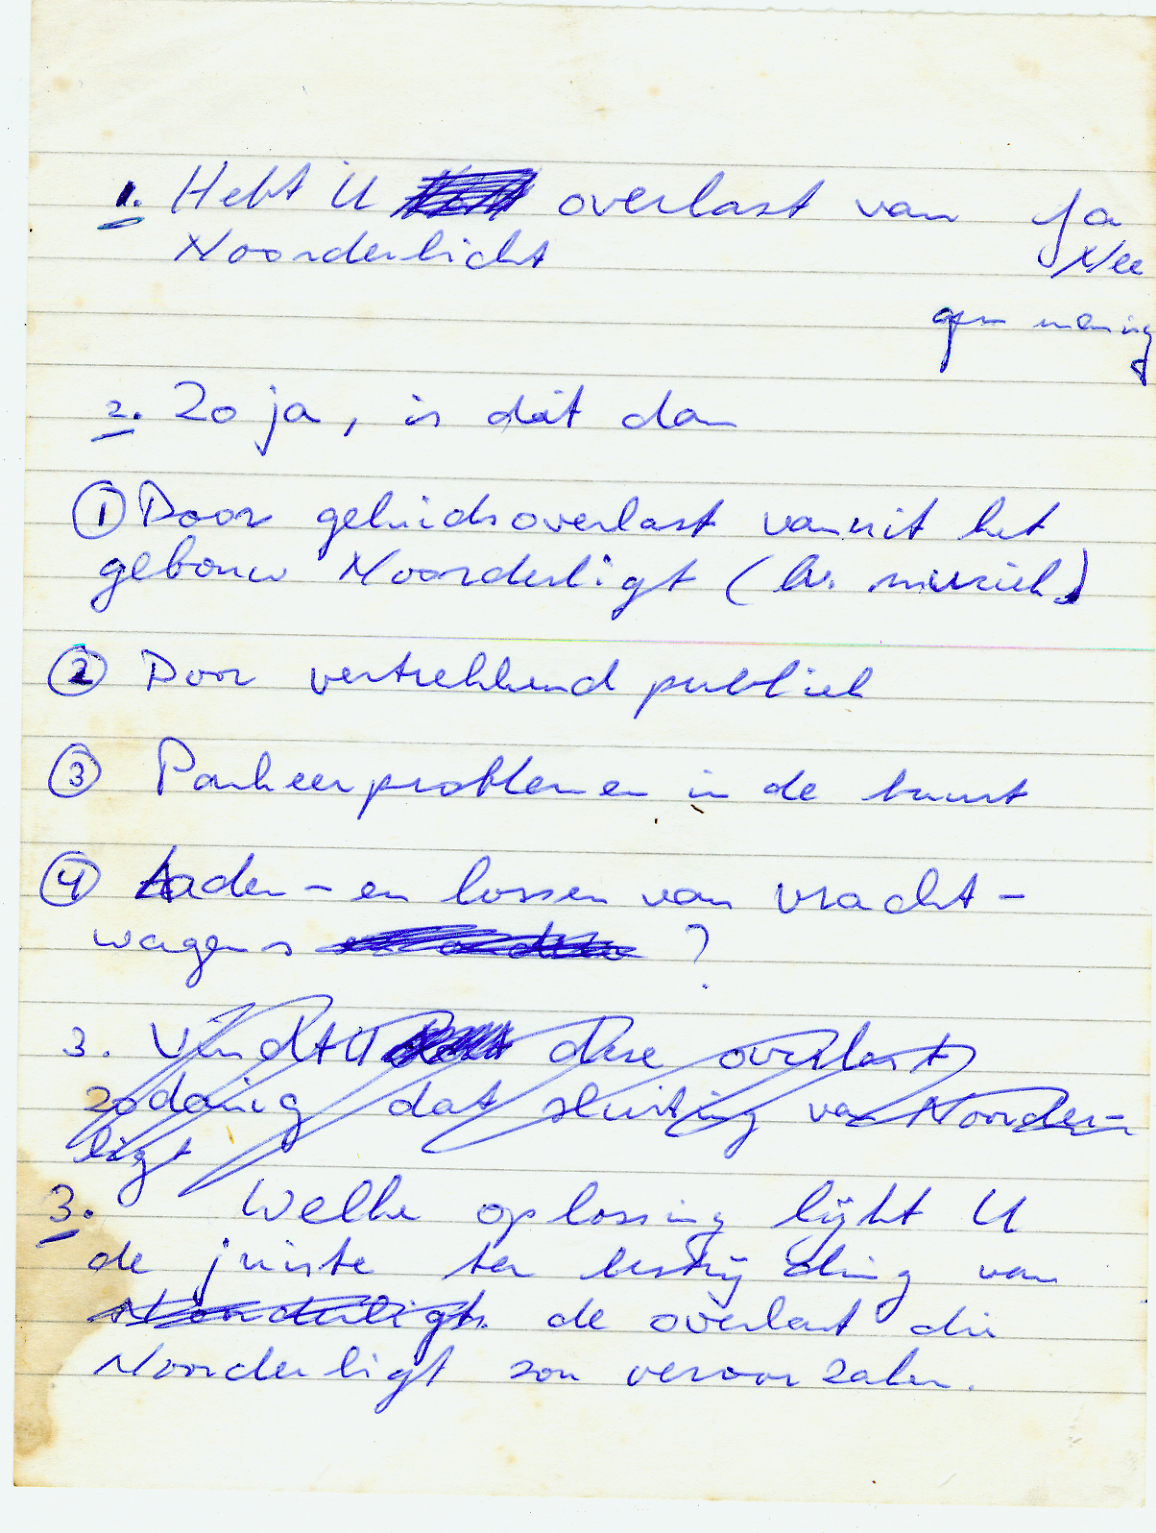 1. Hebt U overlast van Ja
Noorderlicht Nee
geen mening
2. Zo ja, is dát dan
① Door geluidsoverlast vanuit het
gebouw Noorderligt (bv. muziek)
② Door vertrekkend publiek
③ Parkeerproblemen in de buurt
④ Laden - en lossen van vracht-
wagens ?
3. Vindt U deze overlast
zodanig dat sluiting van Noorder-
ligt
3. Welke oplossing lijkt U
de juiste ter bestrijding van
Noorderligt. de overlast die
Noorderligt zou veroorzaken.